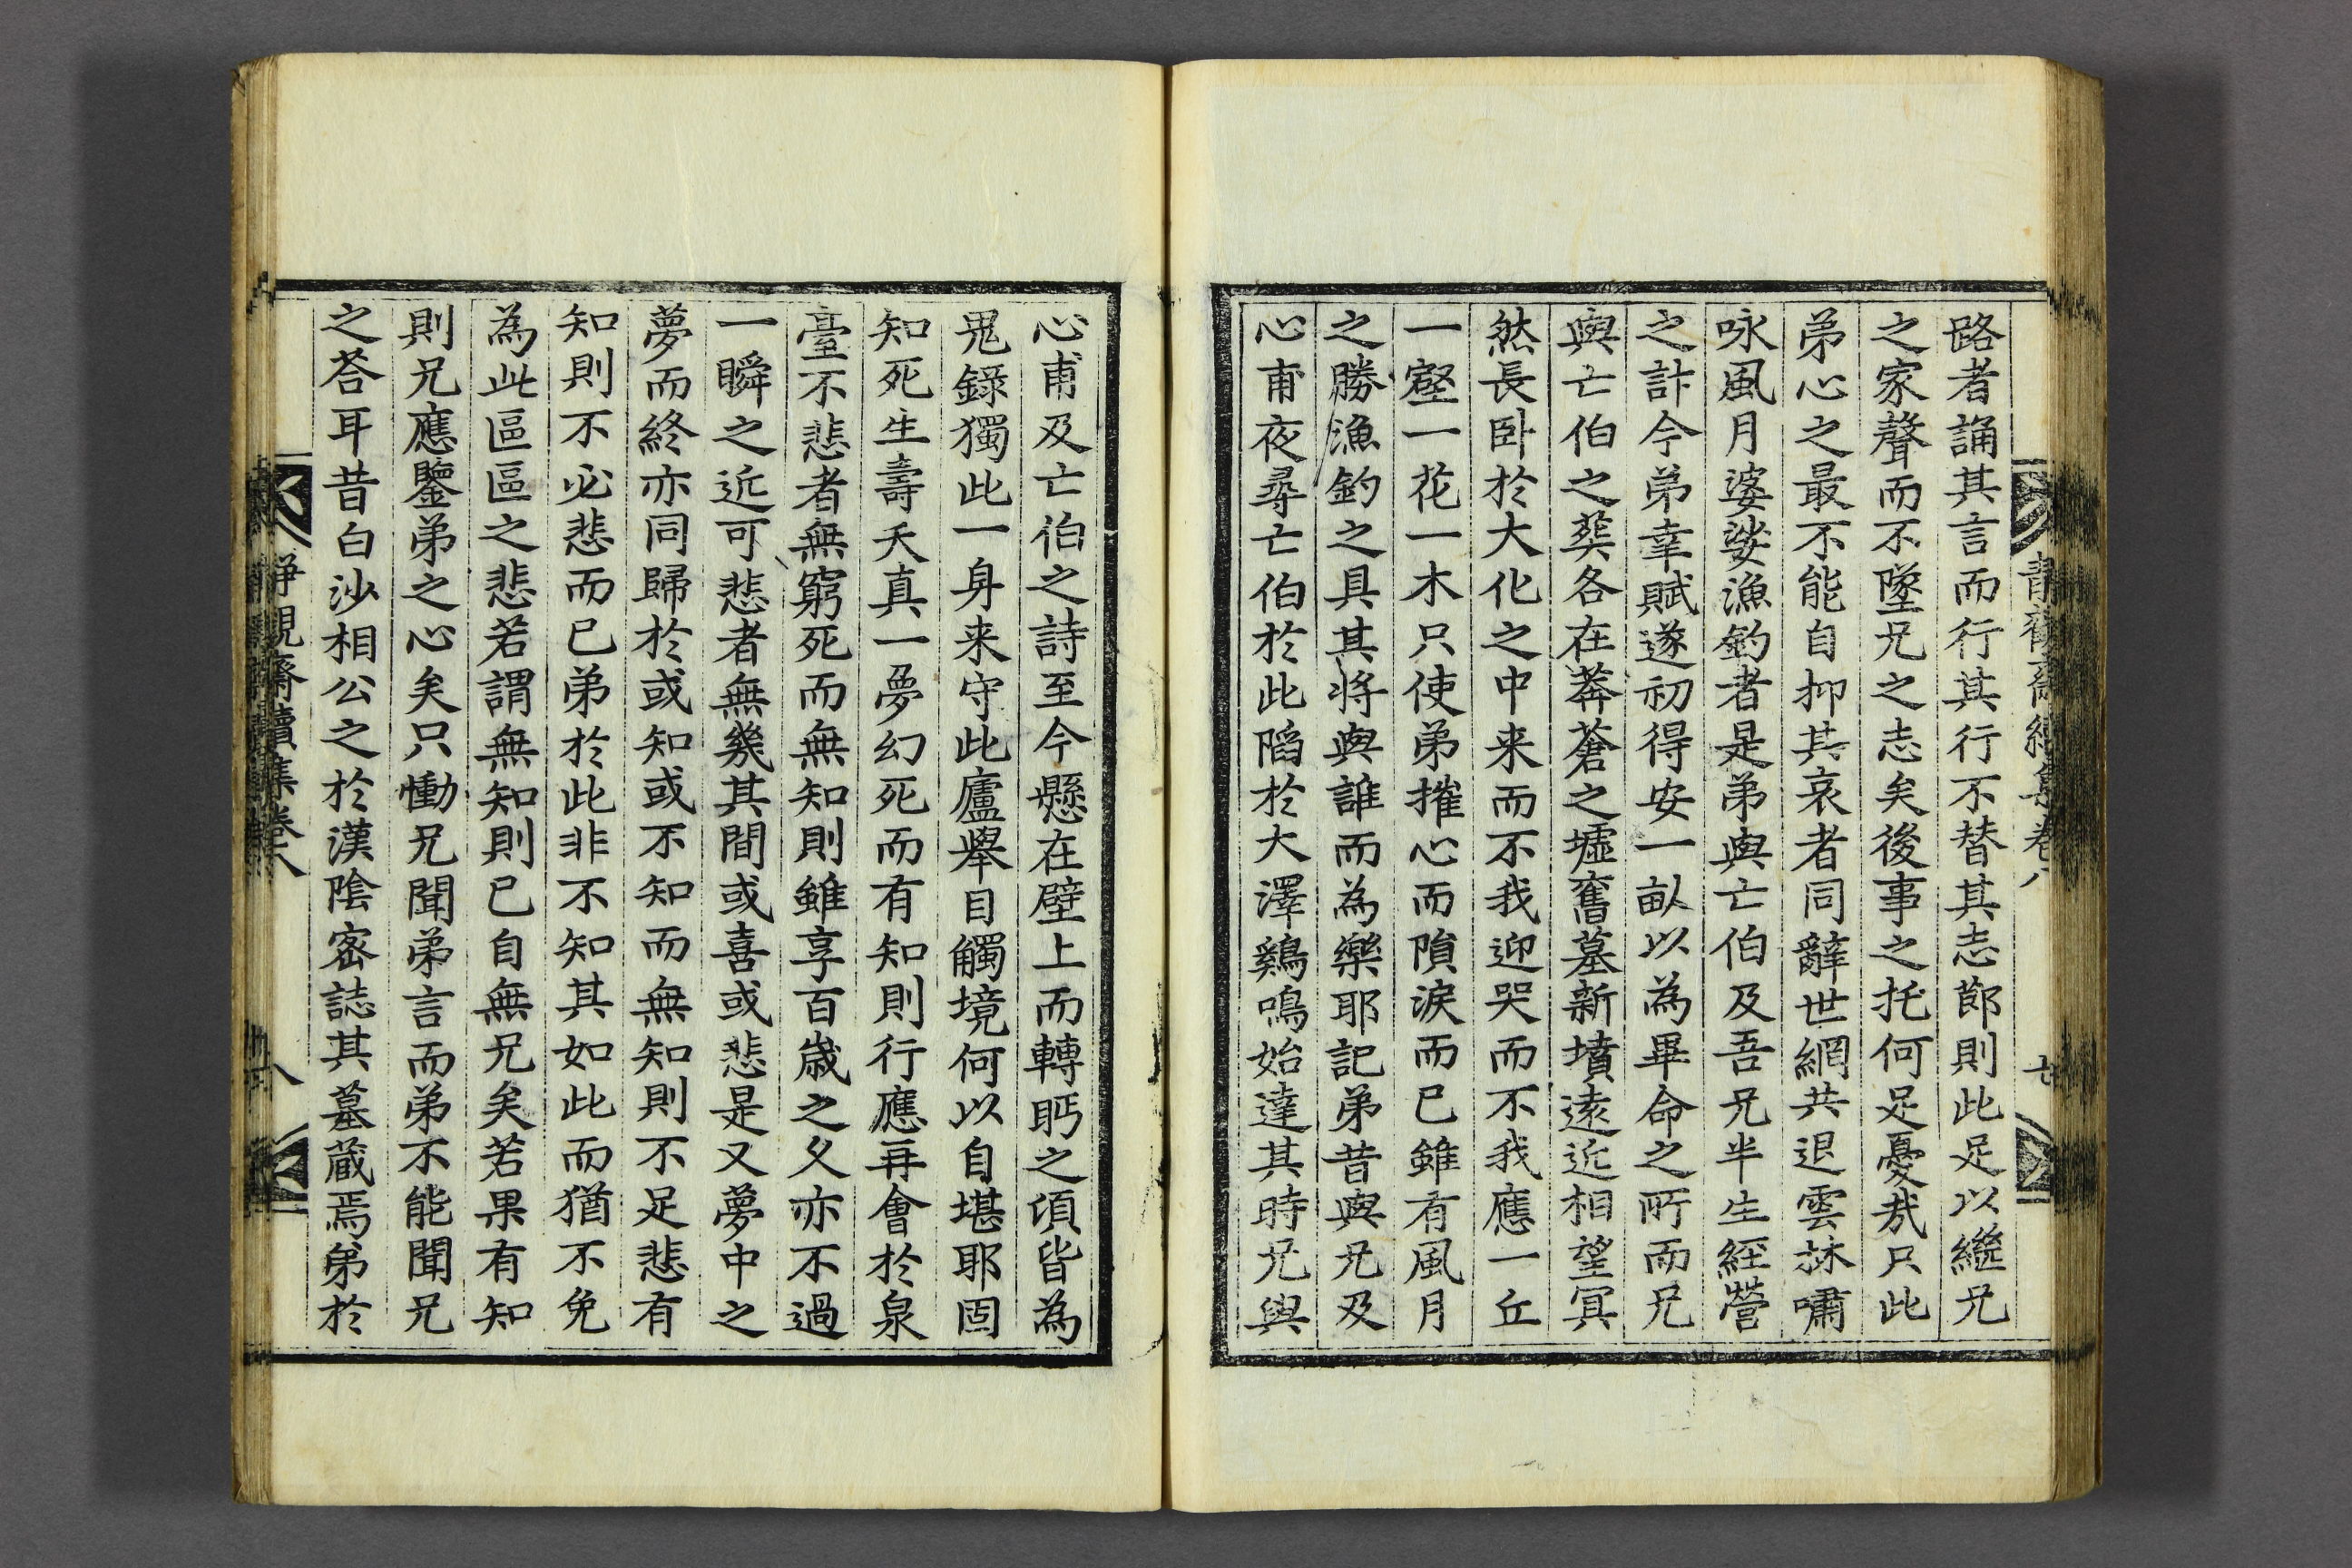 路者誦其言而行其行不替其志節則此足以繼兄
之家聲而不墜兄之志矣後事之托何足憂哉只此
弟心之最不能自抑其哀者同辭世網共退雲林嘯
咏風月婆娑漁釣者是弟與亡伯及吾兄半生經營
之計今弟幸賦遂初得安一畝以為畢命之所而兄
與亡伯之葬各在莽蒼之墟舊墓新墳遠近相望冥
然長卧於大化之中来而不我迎哭而不我應一丘
一壑一花一木只使弟摧心而隕淚而已雖有風月
之勝漁釣之具其將與誰而為樂耶記弟昔與兄及
心甫夜尋亡伯於此陷於大澤鷄鳴始達其時兄與
心甫及亡伯之詩至今懸在壁上而轉眄之頃皆為
鬼錄獨此一身来守此廬舉目觸境何以自堪耶固
知死生壽夭真一夢幻死而有知則行應再會於泉
臺不悲者無窮死而無知則雖享百歲之久亦不過
一瞬之近可悲者無幾其間或喜或悲是又夢中之
夢而終亦同歸於或知或不知而無知則不足悲有
知則不必悲而已弟於此非不知其如此而猶不免
為此區區之悲若謂無知則已自無兄矣若果有知
則兄應鑒弟之心矣只慟兄聞弟言而弟不能聞兄
之荅耳昔白沙相公之於漢陰密誌其墓藏焉弟於
靜觀齋續集卷八
八